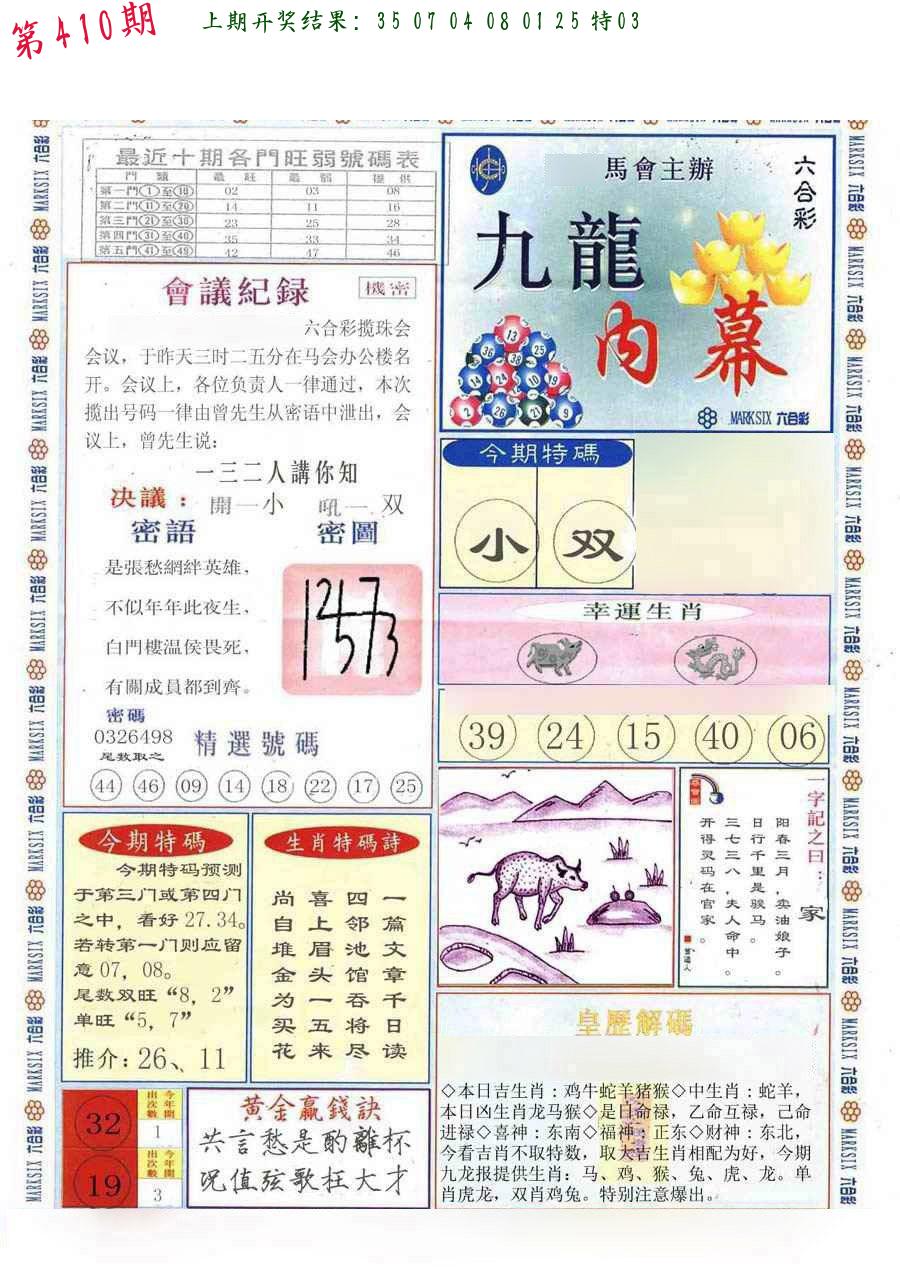 第410期
上期开奖结果：35 07 04 08 01 25 特03
最近十期各門旺弱號碼表
門 類 最 旺 最 弱 提 供
第一門①至⑩ 02 03 08
第二門⑪至⑳ 14 11 16
第三門㉑至㉚ 23 25 28
第四門㉛至㊵ 35 33 34
第五門㊶至㊾ 42 47 46
會議紀録
機密
六合彩揽珠会
会议，于昨天三时二五分在马会办公楼名
开。会议上，各位负责人一律通过，本次
揽出号码一律由曾先生从密语中泄出，会
议上，曾先生说：
一三二人講你知
决議：開一小 吼一双
密語
是張愁網絆英雄，
不似年年此夜生，
白門樓温侯畏死，
有關成員都到齊。
密圖
密碼
0326498
尾数取之
精選號碼
44 46 09 14 18 22 17 25
馬會主辦
六合彩
九龍
内幕
13
36 38 25
14 24 10 19
2 26 21 9
MARKSIX 六合彩
今期特碼
小 双
幸運生肖
39 24 15 40 06
一字記之曰：家
阳春三月，卖油娘子。
日行千里是骏马。
三七三八，夫人命中。
开得灵码在官家。
曾道人
今期特碼
今期特码预测
于第三门或第四门
之中，看好27.34。
若转第一门则应留
意07，08。
尾数双旺“8，2”
单旺“5，7”
推介：26、11
生肖特碼詩
一篇文章千日读
四邻池馆吞将尽
喜上眉头一五来
尚自堆金为买花
32
今年開出次數
1
19
今年開出次數
3
黄金赢錢訣
共言愁是酌離杯
况值弦歌枉大才
皇歷解碼
◇本日吉生肖：鸡牛蛇羊猪猴◇中生肖：蛇羊，
本日凶生肖龙马猴◇是日命禄，乙命互禄，己命
进禄◇喜神：东南◇福神：正东◇财神：东北，
今看吉肖不取特数，取大吉生肖相配为好，今期
九龙报提供生肖：马、鸡、猴、兔、虎、龙。单
肖虎龙，双肖鸡兔。特别注意爆出。